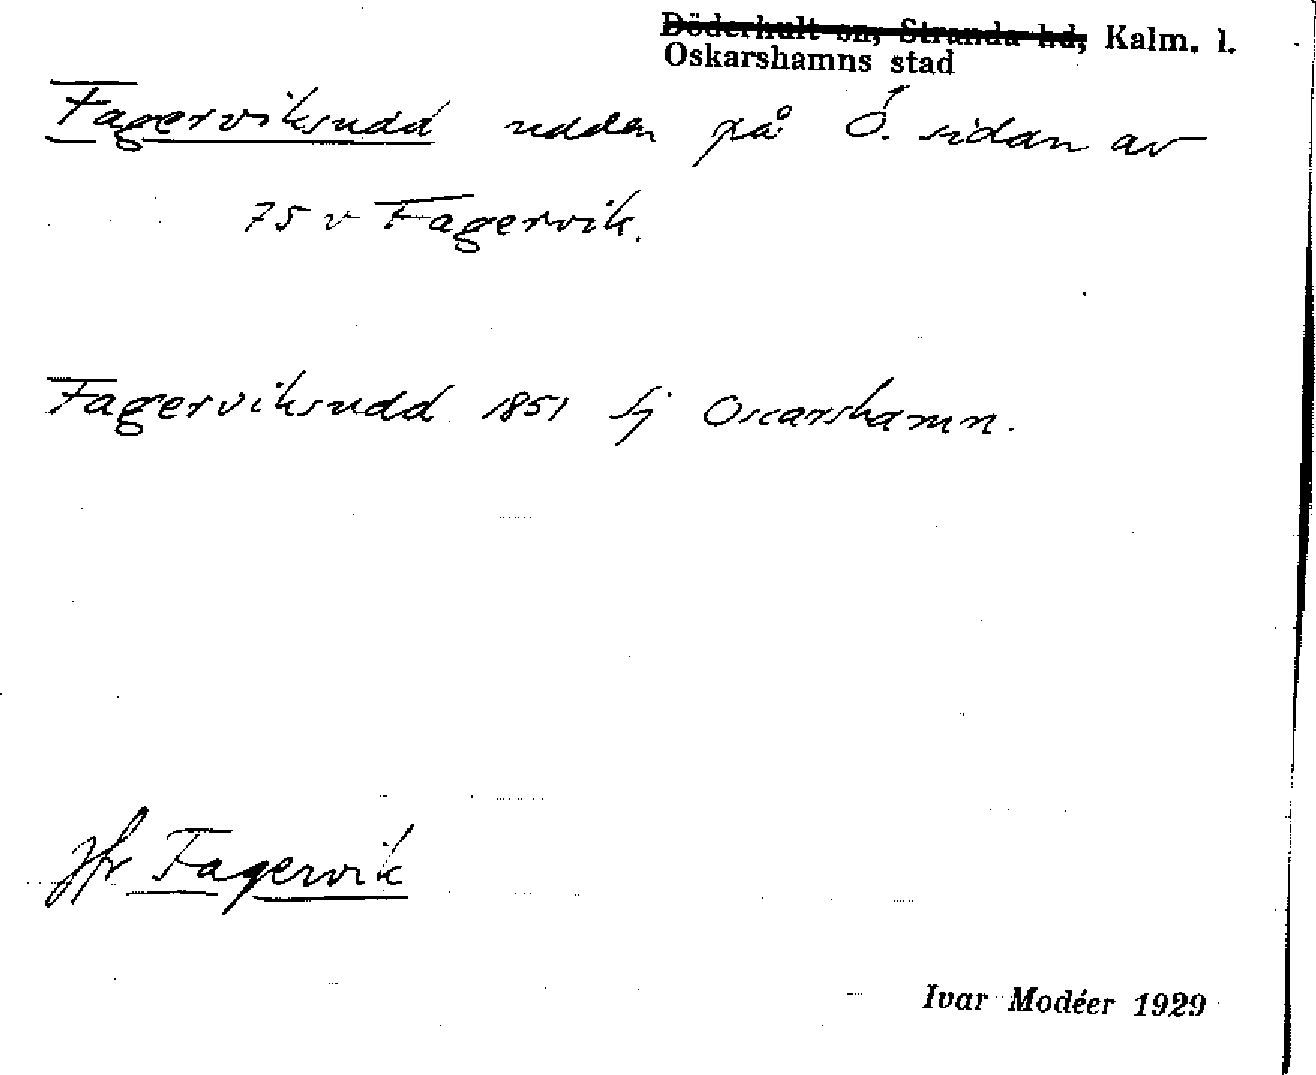 Döderhult sn, Stranda hd, Kalm. l.
Oskarshamns stad
Fagerviksudd udden på Ö. sidan av
75 v Fagervik.
Fagerviksudd 1851 Sj Oscarshamn.
jfr Fagervik
Ivar Modéer 1929